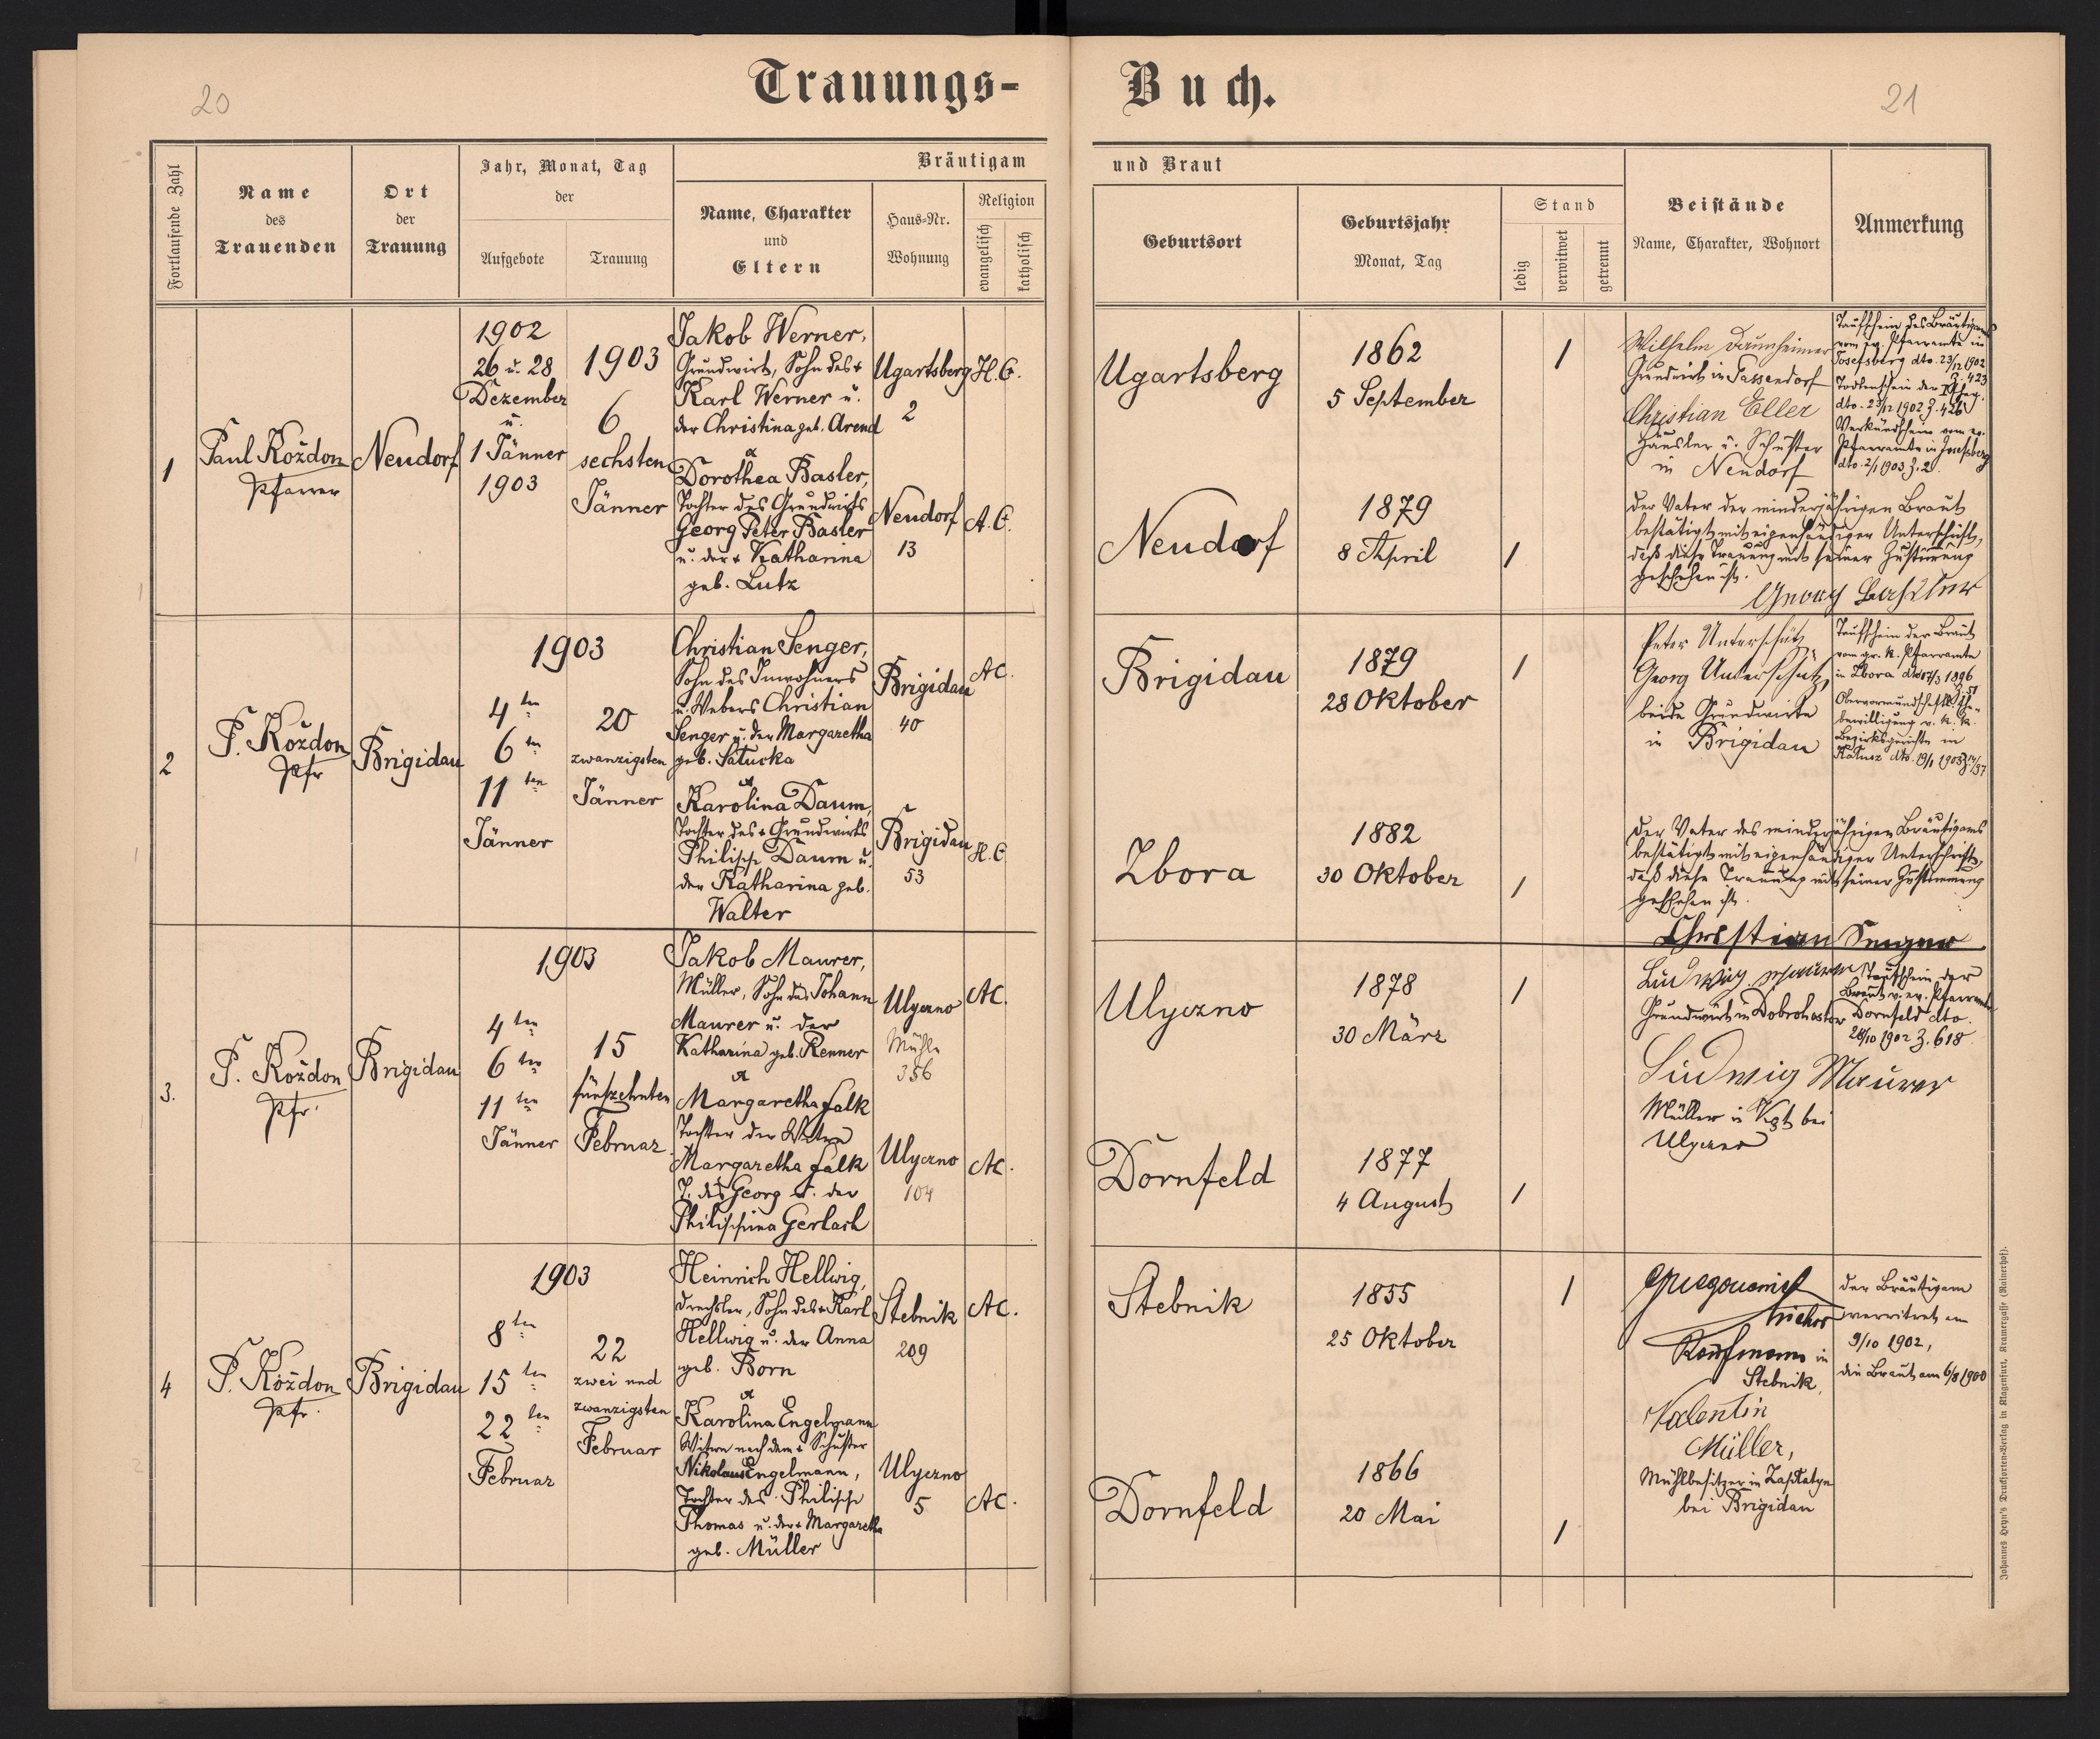 20
Trauungs-
Buch.
21
Fortlaufende Zahl
Name
des
Trauenden
Ort
der
Trauung
Jahr, Monat, Tag
der
Aufgebote
Trauung
Bräutigam
Name, Charakter
und
Eltern
Haus-Nr.
Wohnung
Religion
evangelisch
katholisch
und Braut
Geburtsort
Geburtsjahr
Monat, Tag
Stand
ledig
verwitwet
getrennt
Beistände
Name, Charakter, Wohnort
Anmerkung
1
Paul Koždon
Pfarrer
Neudorf
1902
26 u. 28
Dezember
u.
1 Jänner
1903
1903
6
sechsten
Jänner
Jakob Werner,
Grundwirt, Sohn des +
Karl Werner u.
der Christina geb. Arend
Dorothea Basler,
Tochter des Grundwirts
Georg Peter Basler
u. der + Katharina
geb. Lutz
Ugartsberg
2
Neudorf
13
H.C.
A.C.
Ugartsberg
Neudorf
1862
5 September
1879
8 April
Wilhelm Daumheimer
Grundwirt in Gassendorf
Christian Eller
Häusler u. Schuster
in Neudorf
Taufschein des Bräutigams
vom ev. Pfarramte in
Josefsberg dto. 23/12 1902
Z. 423
Todtenschein der
dto. 23/12 1902 Z. 426
Verkündschein vom ev.
Pfarramte in Josefsberg
dto. 2/1 1903 Z. 2.
Der Vater der minderjährigen Braut
bestätigt mit eigenhändiger Unterschrift,
daß diese Trauung mit seiner Zustimmung
geschehen ist.
Georg Basler
2
P. Koždon
Pfr
Brigidau
1903
4ten
6ten
11ten
Jänner
20
zwanzigsten
Jänner
Christian Senger,
Sohn des Inwohners
u. Webers Christian
Senger u. der Margaretha
geb. Satucka
Karolina Daum,
Tochter des + Grundwirts
Philipp Daum u.
der Katharina geb.
Walter
Brigidau
40
Brigidau
53
AC.
H.C.
Brigidau
Zbora
1879
28 Oktober
1882
30 Oktober
Peter Unterschütz
Georg Unterschütz
beide Grundwirte
in Brigidau
Taufschein der Braut
vom gr. k. Pfarramte
in Zbora dto 17/3 1896
Obervormundschaftl. Ehe-
bewilligung v. k. k.
Bezirksgerichte in
Kałusz dto. 19/1 1903
Der Vater des minderjährigen Bräutigams
bestätigt mit eigenhändiger Unterschrift,
daß diese Trauung mit seiner Zustimmung
geschehen ist.
Christian Senger
3.
P. Koždon
Pfr.
Brigidau
1903
4ten
6ten
11ten
Jänner
15
fünfzehnten
Februar
Jakob Maurer,
Müller, Sohn des Johann
Maurer u. der
Katharina geb. Renner
Margaretha Falk
Tochter der Witwe
Margaretha Falk
T. des Georg u. der
Philippina Gerlach
Ulyczno
Mühle
356
Ulyczno
104
AC.
AC.
Ulyczno
Dornfeld
1878
30 März
1877
4 August
Ludwig Maurer
Grundwirt in Dobrohostow
Ludwig Maurer
Müller in Kąt bei
Ulyczno
Taufschein der
Braut v. ev. Pfarramte
Dornfeld dto.
28/10 1902 Z. 618
4
P. Koždon
Pfr.
Brigidau
1903
8ten
15ten
22ten
Februar
22
zwei und
zwanzigsten
Februar
Heinrich Hellwig,
Drechsler, Sohn des + Karl
Hellwig u. der Anna
geb. Born
Karolina Engelmann
Witwe nach dem + Schuster
Nikolaus Engelmann,
Tochter des Philipp
Thomas u. der + Margaretha
geb. Müller
Stebnik
209
Ulyczno
5
AC.
AC.
Stebnik
Dornfeld
1855
25 Oktober
1866
20 Mai
Kaufmann in
Stebnik,
Valentin
Müller,
Mühlbesitzer in Zaplatyn
bei Brigidau
Der Bräutigam
verwitwet am
9/10 1902,
die Braut am 6/8 1900
Johannes Heyn's Drucksorten-Verlag in Klagenfurt, Kramergasse (Rainerhof).